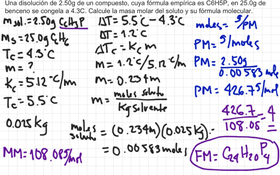 Una disolución de 2.50g de un compuesto, cuya fórmula empírica es C6H5P, en 25.0g de
benceno se congela a 4.3C. Calcule la masa molar del soluto y su fórmula molecular.
msol: 2.50g C6H5P
ms = 25.0g C6H6
Tc = 4.3°C
m = ?
Kc = 5.12°C/m
Tc = 5.5°C
0.025kg
MM = 108.08g/mol
ΔT = 5.5°C - 4.3°C
ΔT = 1.2°C
ΔTc = Kc m
m = 1.2°C/5.12°C/m
m = 0.234m
m = moles soluto / Kg solvente
moles soluto = (0.234m)(0.025kg) =
= 0.00583 moles
moles = g/PM
PM = g/moles
PM = 2.50g / 0.00583 moles
PM = 426.7g/mol
426.7 / 108.08 = 4
FM = C24H20P4